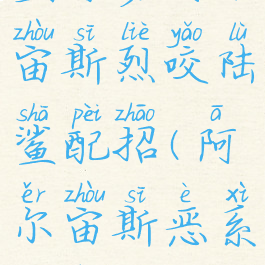 zhòu sī liè yǎo lù
宙斯烈咬陆
shā pèi zhāo ā
鲨配招(阿
ěr zhòu sī è xì
尔宙斯恶系